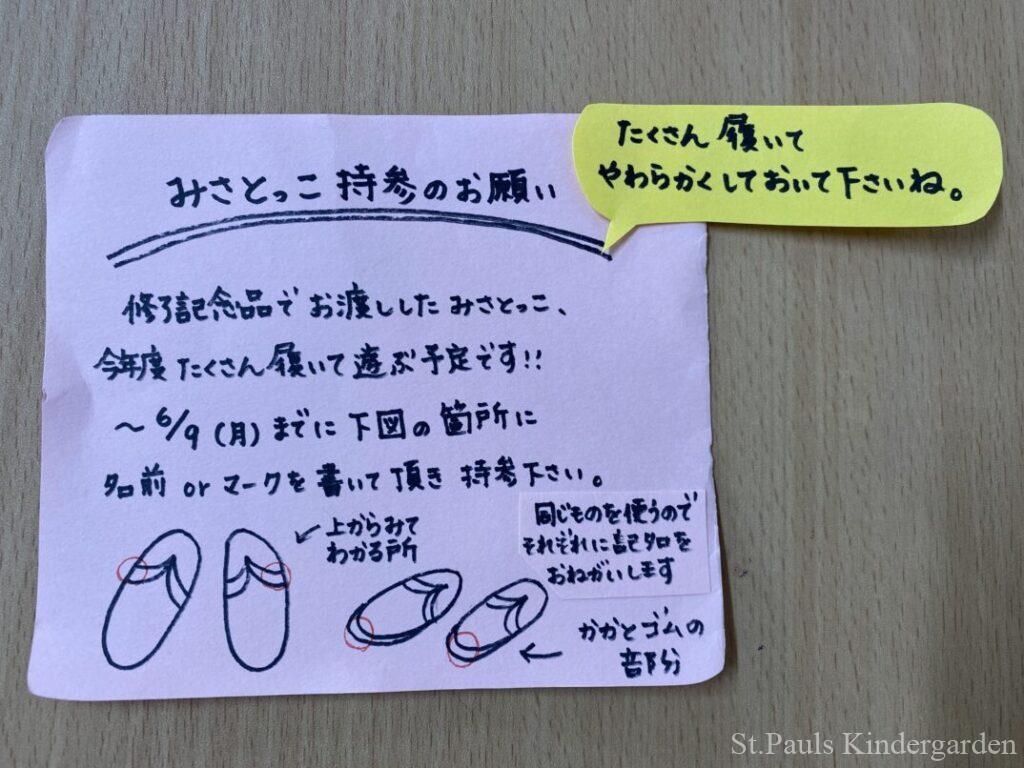 みさとっこ 持参のお願い
たくさん 履いて
やわらかくしておいて下さいね。
修了記念品で お渡ししたみさとっこ、
今年度 たくさん 履いて 遊ぶ予定です!!
～6/9(月)までに 下図の箇所に
名前 or マークを書いて頂き 持参下さい。
上からみて
わかる所
同じものを使うので
それぞれに記名を
おねがいします
かかとゴムの
部分
St.Pauls Kindergarden